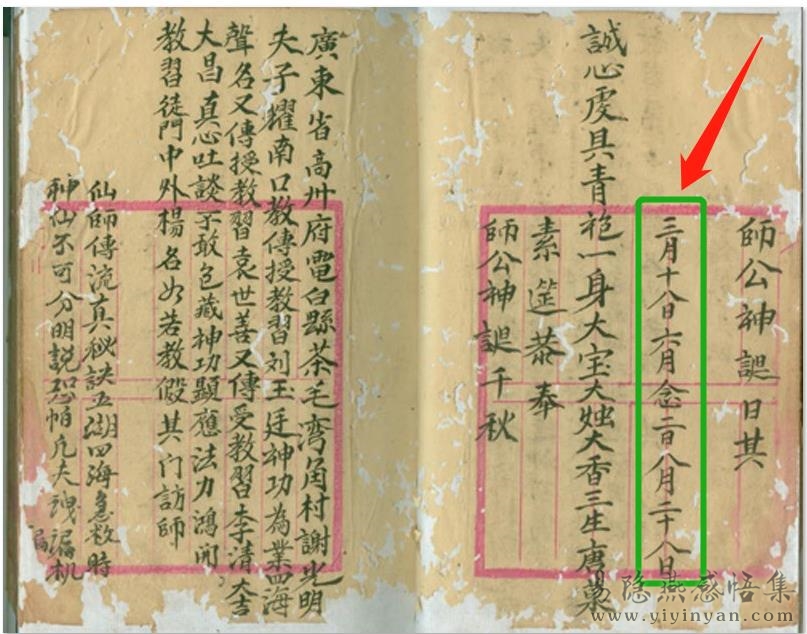 師公神誕日其
三月十八日六月念二日八月二十八日
誠心虔具青袍一身大宝大烛大香三生唐菓
素筵恭奉
師公神誕千秋
廣東省高州府電白縣茶毛灣角村謝光明
夫子耀南口教傳授教習刘玉廷神功為業四海
聲名又傳授教習袁世善又傳受教習李清大吉
大昌真心吐談不敢包藏神功顯應法力鴻開
教習徒門中外楊名如若教假其门訪師
仙師傳流真秘訣五湖四海急救時
神仙不可分明說恐怕凡夫洩漏机
漏
易隐燕感悟集
www.yiyinyan.com